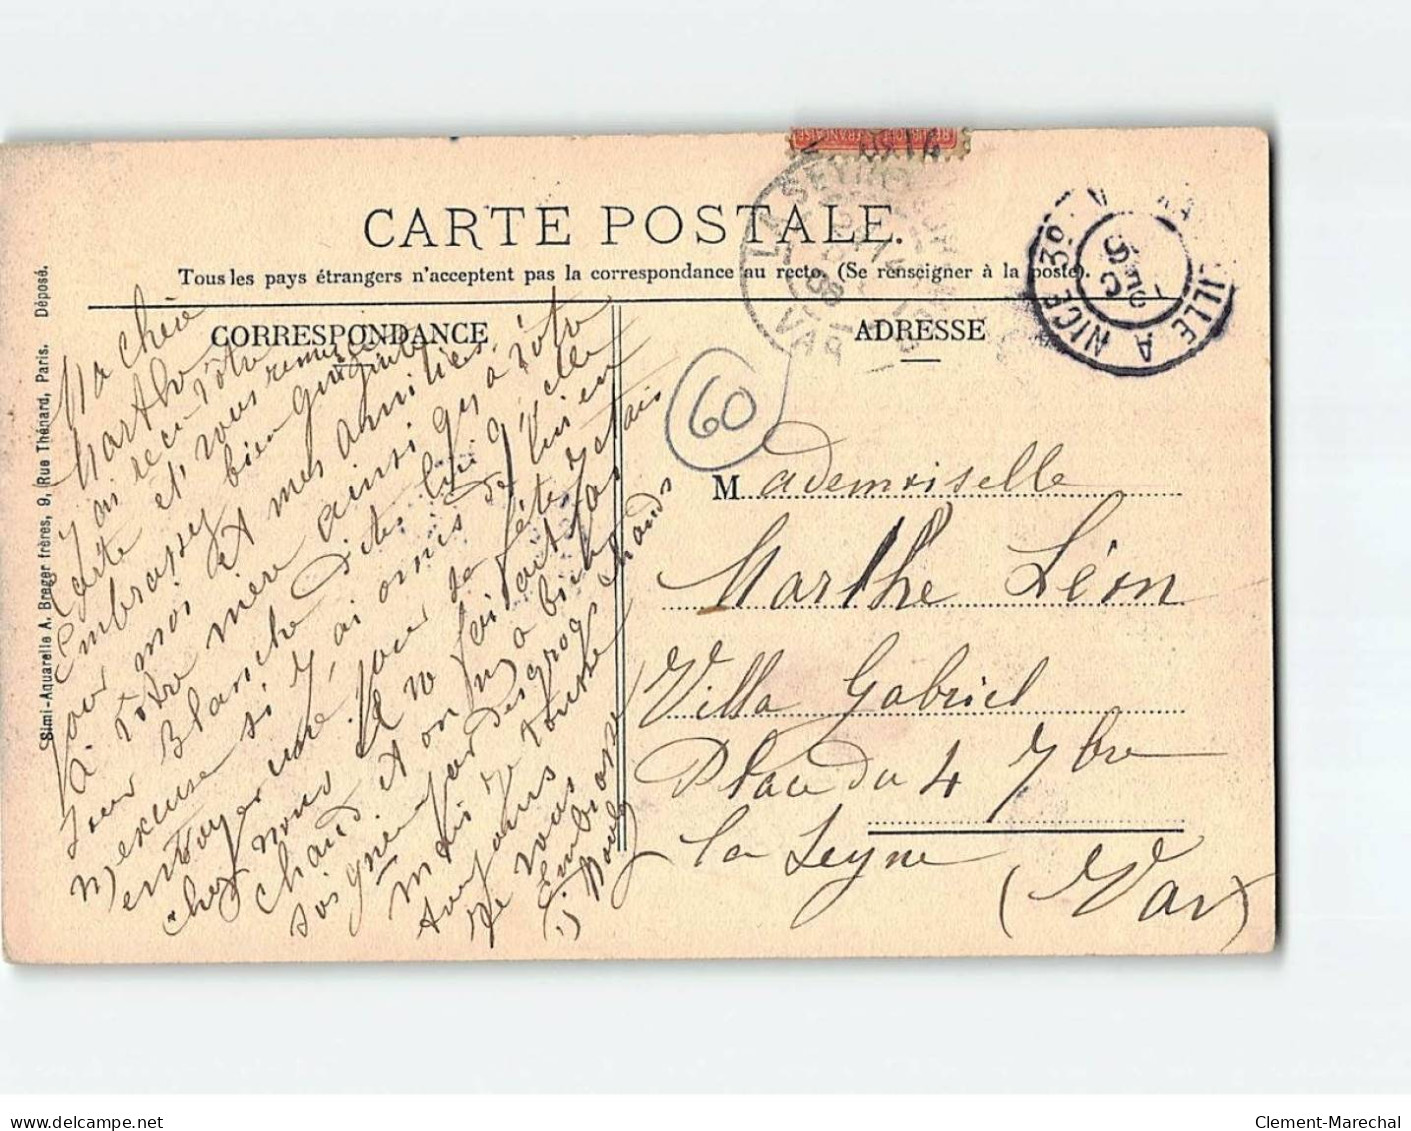 CARTE POSTALE.
Tous les pays étrangers n'acceptent pas la correspondance au recto. (Se renseigner à la poste).
CORRESPONDANCE
ADRESSE
Simi-Aquarelle A. Breger frères, 9, Rue Thénard, Paris. Déposé.
REPUBLIQUE FRANÇAISE
LA SEYNE
VAR
ILLE A NICE 3º
60
Ma chère
Marthe
J'ai reçu vôtre
Carte et vous remercie
Embrassez bien
pour moi et mes amitiés
à vôtre mère ainsi qu'à vôtre
sœur Blanche dites lui qu'elle
m'excuse si j'ai omis de
envoyer une pour sa fête j'étais
chez nous il ne fait pas
chaud et on m'a bien
soigné par des grogs chauds
mais je tousse
toujours
Je vous
Embrasse
Mademoiselle
Marthe Léon
Villa Gabriel
Place du 4 7bre
La Seyne
(Var)
delcampe.net
Clement-Marechal